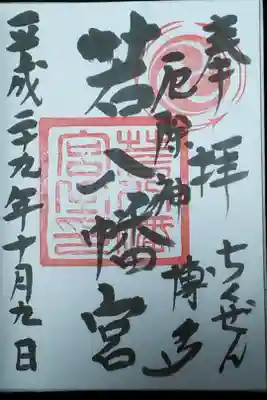 奉拝
ちくぜん
厄除神
博多
若八幡宮
若八幡宮之印
平成二十九年十月九日